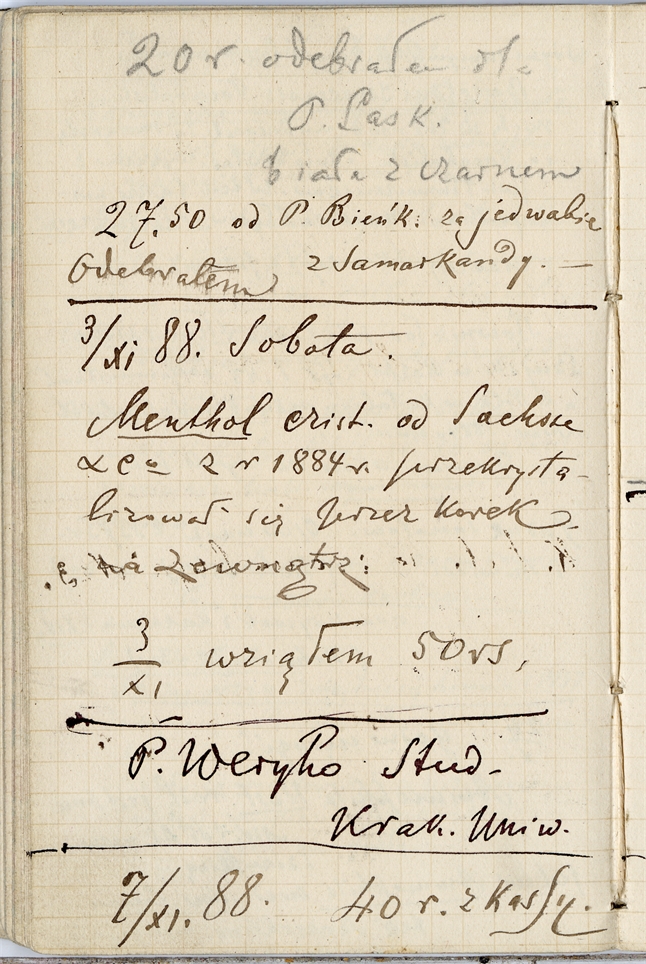 20 r. odebrałem dla
P. Lask.
biała z czarnem
27.50 od P. Bieńk. za jedwabie
Odebrałem z Samarkandy. —
3/XI 88. Sobota.
Menthol crist. od Sachse
& Co z r 1884 r. przekrysta-
lizował się przez korek
na zewnątrz:
3/XI wziąłem 50 rs,
P. Weryho Stud.
Krak. Uniw.
7/XI. 88. 40 r. z Kassy.